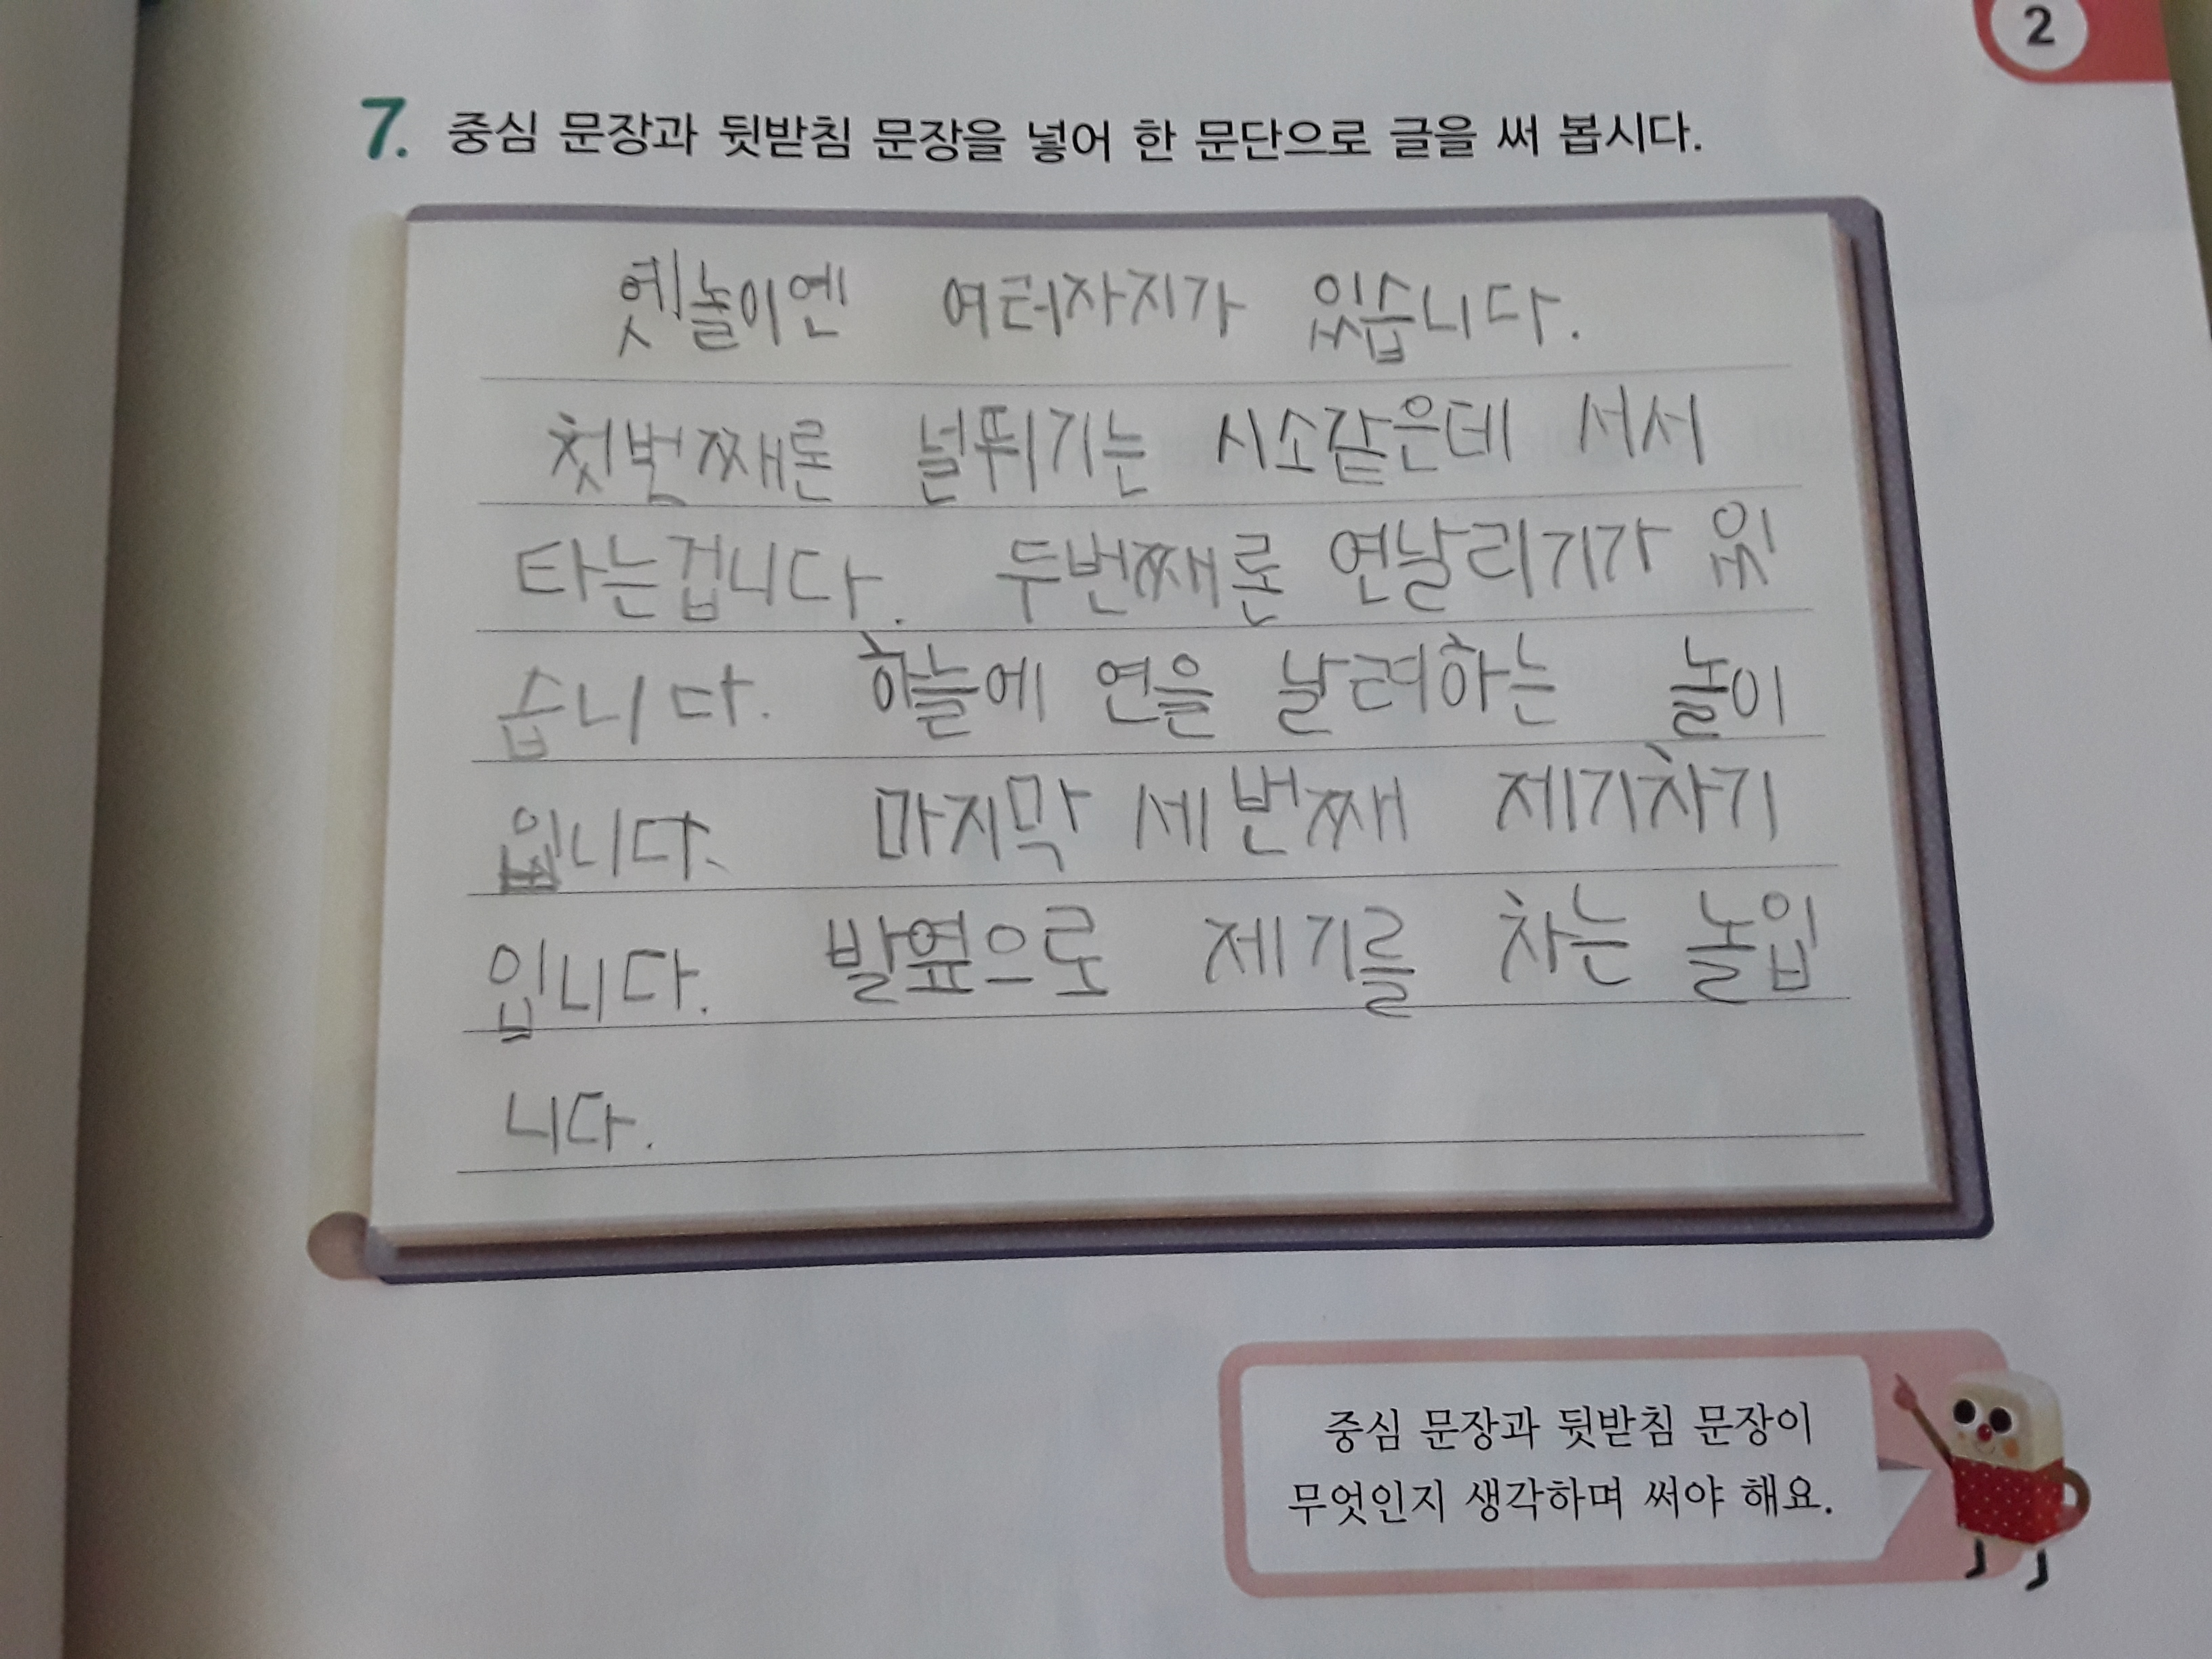 2
7. 중심 문장과 뒷받침 문장을 넣어 한 문단으로 글을 써 봅시다.
옛놀이엔 여러자지가 있습니다.
첫번째론 널뛰기는 시소같은데 서서
타는겁니다. 두번째론 연날리기가 있
습니다. 하늘에 연을 날려하는 놀이
입니다. 마지막 세번째 제기차기
입니다. 발옆으로 제기를 차는 놀입
니다.
중심 문장과 뒷받침 문장이
무엇인지 생각하며 써야 해요.